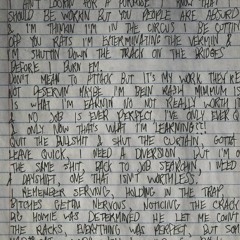 AIN'T LOOKIN FOR A PURPOSE I KNOW THAT
SHOULD BE WORKIN BUT YOU PEOPLE ARE ABSURD
& I'M THINKIN I'M IN THE CIRCUS BE CUTTIN
OFF YOU RATS I'M EXTERMINATING THE VERMIN &
I'M SHUTTIN DOWN THE TRACK ON THE BRIDGES
BEFORE I BURN EM.
DON'T MEAN TO ATTACK BUT IT'S MY WORK THEY
NOT DESERVIN MAYBE I'M DEIN RASH MINIMUM
IS WHAT I'M EARNIN NO NOT REALLY WORTH IT
& NO JOB IS EVER PERFECT, I'VE ONLY EVER
& ONLY NOW THAT'S WHAT I'M LEARNING!!!
QUIT THE BULLSHIT & SHUT THE CURTAIN GOTTA
LEAVE QUICK, I NEED A DIVERSION BUT I'M ON
THE SAME SHIT, BACK TO JOB SEARCHIN I NEED
A DAYSHIFT, ONE THAT ISN'T WORTHLESS,
I REMEMBER SERVING, HOLDING IN THE TRAP
BITCHES GETTIN NERVOUS, NOTICING THE CRACK
HOMIE WAS DETERMINED HE LET ME COUNT
THE RACKS, EVERYTHING WAS PERFECT, BUT SOM